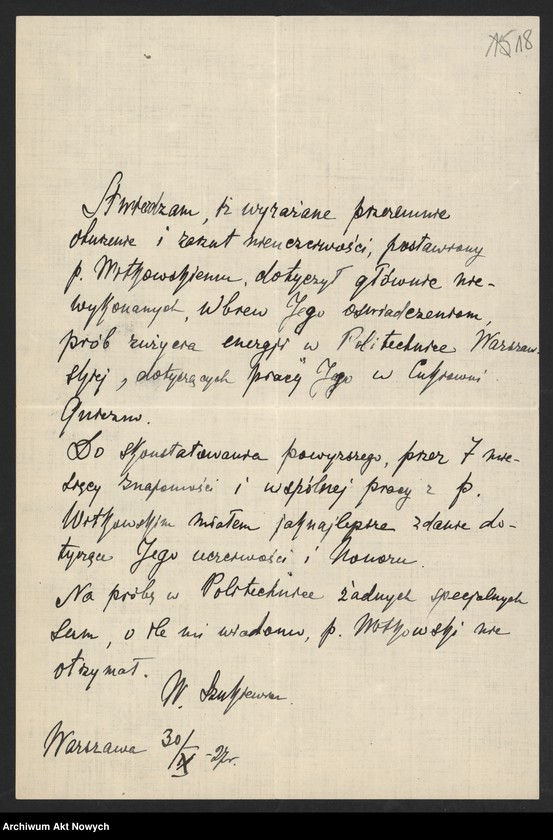 15 18
Stwierdzam, iż wyrażane przezemnie
oburzenie i zarzut nieuczciwości, postawiony
p. Witkowskiemu, dotyczył głównie nie-
wykonanych, wbrew Jego oświadczeniom,
prób zużycia energji w Politechnice Warszaw-
skiej, dotyczących pracy Jego w Cukrowni
Gniezno.
Do skonstatowania powyższego, przez 7 mie-
sięcy znajomości i wspólnej pracy z p.
Witkowskim miałem jaknajlepsze zdanie do-
tyczące Jego uczciwości i honoru.
Na próby w Politechnice żadnych specjalnych
sum, o ile mi wiadomo, p. Witkowski nie
otrzymał.
W.
Warszawa 30/IX -27r.
Archiwum Akt Nowych